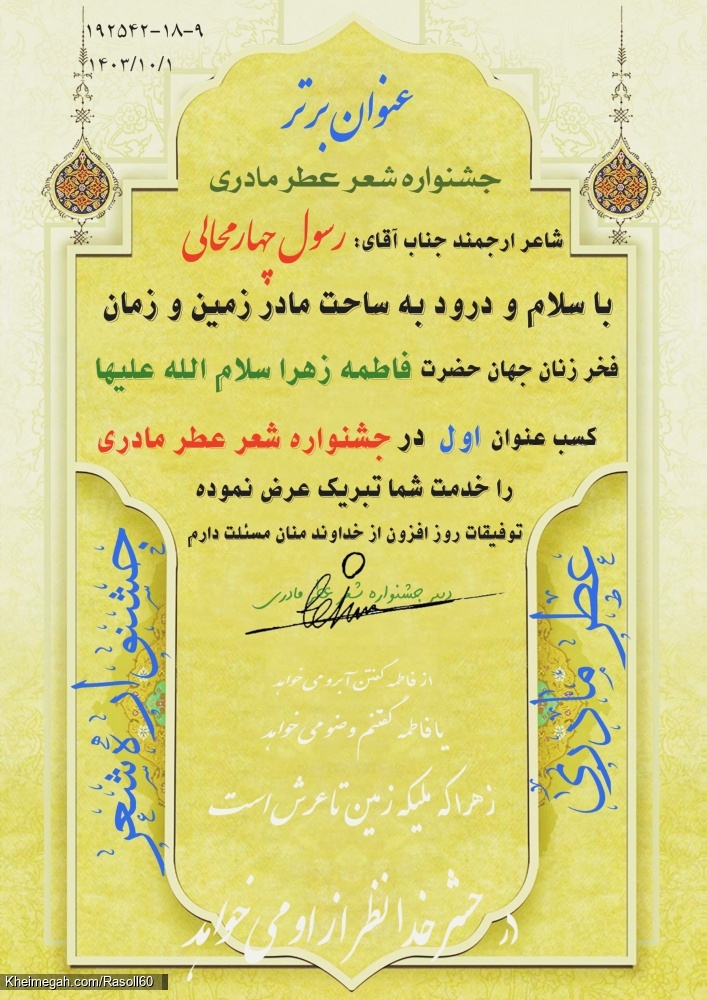 ۱۹۲۵۴۲-۱۸-۹
۱۴۰۳/۱۰/۱
عنوان برتر
جشنواره شعر عطر مادری
شاعر ارجمند جناب آقای: رسول چهارمحالی
با سلام و درود به ساحت مادر زمین و زمان
فخر زنان جهان حضرت فاطمه زهرا سلام الله علیها
کسب عنوان اول در جشنواره شعر عطر مادری
را خدمت شما تبریک عرض نموده
توفیقات روز افزون از خداوند منان مسئلت دارم
دبیر جشنواره شعر عطر مادری
عطر مادری
جشنواره شعر
از فاطمه گفتن آبرو می خواهد
یا فاطمه گفتنم وضو می خواهد
زهرا که ملیکه زمین تا عرش است
در حشر خدا نظر از او می خواهد
Kheimegah.com/Rasoll60